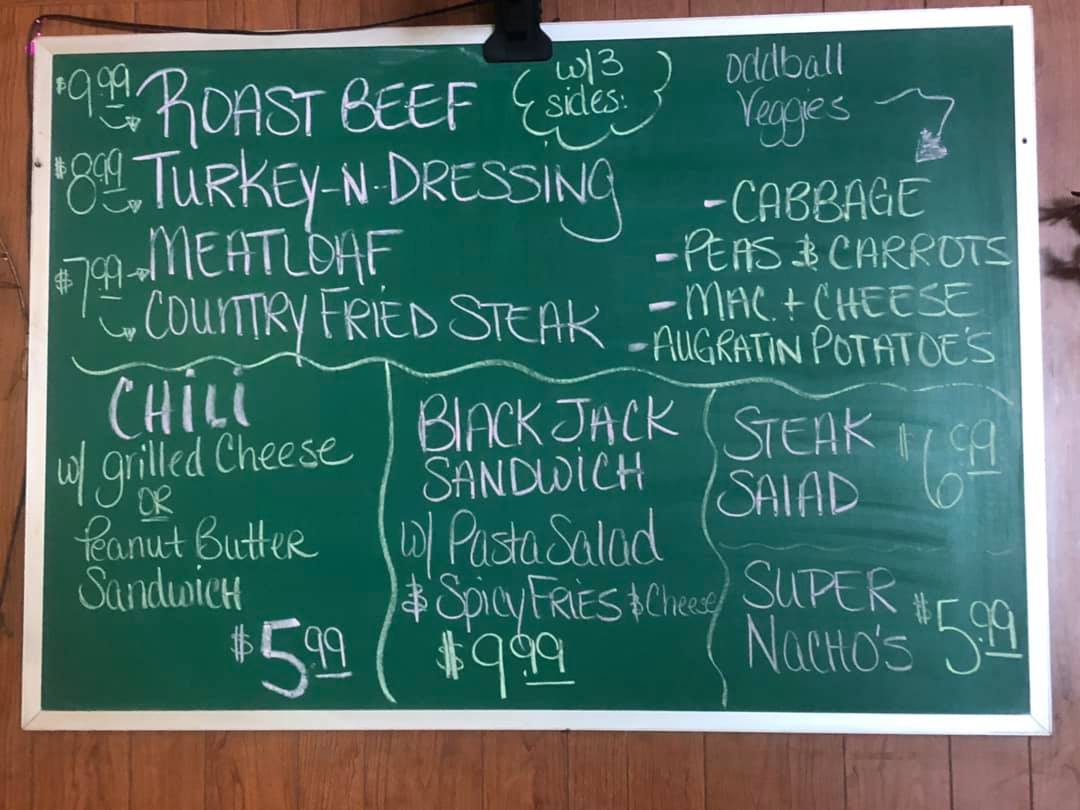 $9.99 ROAST BEEF
w/3 sides:
$8.99 TURKEY-N-DRESSING
$7.99 MEATLOAF
COUNTRY FRIED STEAK
oddball
Veggies
- CABBAGE
- PEAS & CARROTS
- MAC. + CHEESE
- AUGRATIN POTATOE'S
CHILI
w/ grilled Cheese
OR
Peanut Butter
Sandwich
$5.99
BLACK JACK
SANDWICH
w/ Pasta Salad
& Spicy FRIES & Cheese
$9.99
STEAK
SALAD
$6.99
SUPER
NACHO'S
$5.99